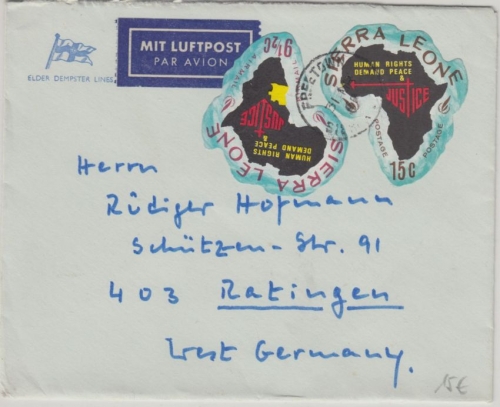 ELDER DEMPSTER LINES
MIT LUFTPOST
PAR AVION
SIERRA LEONE
HUMAN RIGHTS
DEMAND PEACE
&
JUSTICE
SIERRA LEONE
HUMAN RIGHTS
DEMAND PEACE
&
JUSTICE
POSTAGE
POSTAGE
15c
FREETOWN
Herrn
Rüdiger Hofmann
Schützen-Str. 91
403 Ratingen
West Germany.
15€